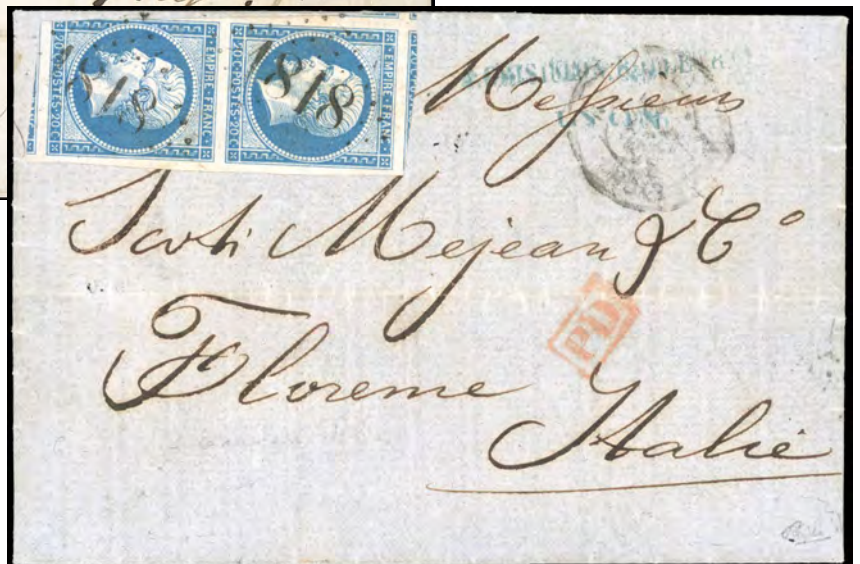 EMPIRE FRANC
POSTES 20 C
1818
EMPIRE FRANC
POSTES 20 C
1818
Messieurs
Scoti Mejean & Cº
PD
Florence
Italie